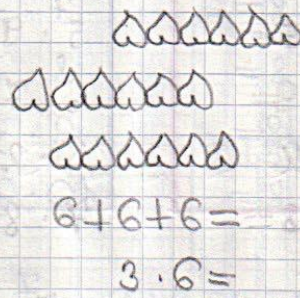 6+6+6=
3·6=